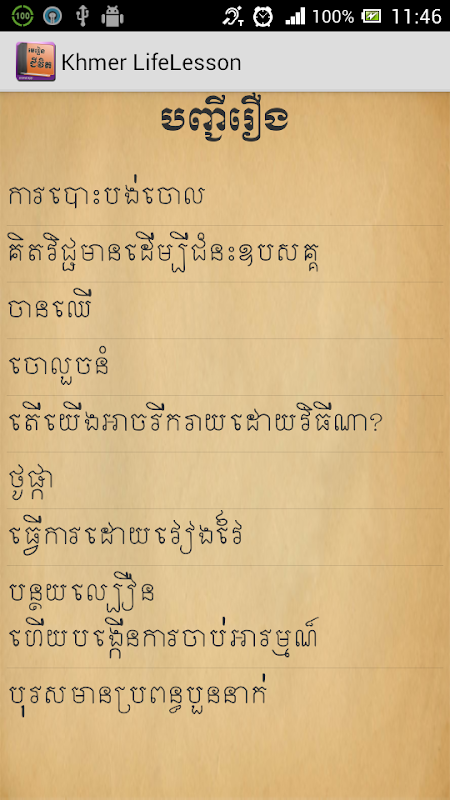 100
100%
11:46
មេរៀន
ជីវិត
Khmer LifeLesson
បញ្ជីរឿង
ការបោះបង់ចោល
គិតវិជ្ជមានដើម្បីជំនះឧបសគ្គ
ចានឈើ
ចោលួចនំ
តើយើងអាចរីករាយដោយវិធីណា?
ថូផ្កា
ធ្វើការដោយវៀងវៃ
បន្ថយល្បឿន
ហើយបង្កើនការចាប់អារម្មណ៍
បុរសមានប្រពន្ធបួននាក់